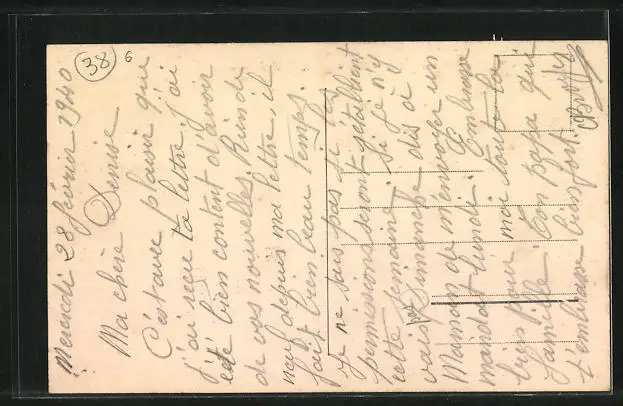 38
6
Mercredi 28 février 1940
Ma chère Denise
C'est avec plaisir que
j'ai reçu ta lettre j'ai
été bien content d'avoir
de vos nouvelles. Rien de
neuf depuis ma lettre, il
fait bien beau temps.
Je ne sais pas si les
permissions seront rétablient
cette semaine. Si je n'y
vais Dimanche dis à
Maman de m'envoyer un
mandat lundi. Embrasse
bien pour moi toute la
famille. Ton papa qui
t'embrasse bien fort.